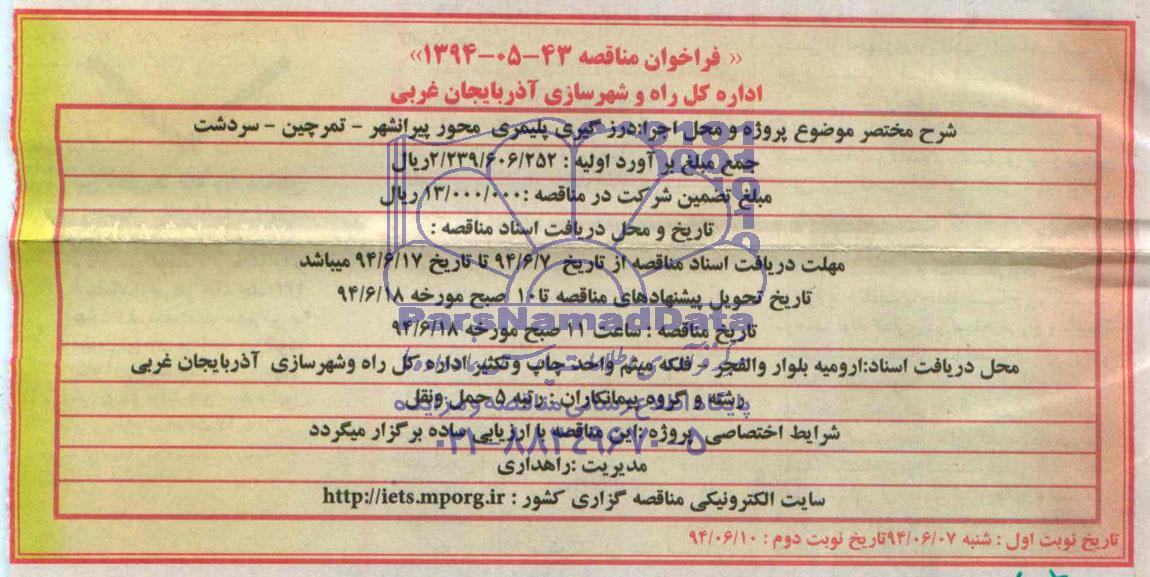 « فراخوان مناقصه ۴۳-۰۵-۱۳۹۴»
اداره کل راه و شهرسازی آذربایجان غربی
شرح مختصر موضوع پروژه و محل اجرا:درز گیری پلیمری محور پیرانشهر - تمرچین - سردشت
جمع مبلغ بر آورد اولیه : ۲/۲۳۹/۶۰۶/۲۵۲ریال
مبلغ تضمین شرکت در مناقصه :۱۳/۰۰۰/۰۰۰ ریال
تاریخ و محل دریافت اسناد مناقصه :
مهلت دریافت اسناد مناقصه از تاریخ ۹۴/۶/۷ تا تاریخ ۹۴/۶/۱۷ میباشد
تاریخ تحویل پیشنهادهای مناقصه تا۱۰ صبح مورخه ۹۴/۶/۱۸
ParsNamadData
تاریخ مناقصه : ساعت ۱۱ صبح مورخه ۹۴/۶/۱۸
محل دریافت اسناد:ارومیه بلوار والفجر - فلکه میثم واحد چاپ وتکثیر اداره کل راه وشهرسازی آذربایجان غربی
رشته و گروه پیمانکاران : رتبه ۵ حمل ونقل
پایگاه اطلاع رسانی مناقصه و مزایده
شرایط اختصاصی پروژه :این مناقصه با ارزیابی ساده برگزار میگردد
۰۲۱-۸۸۳۴۹۶۷۰-۵
مدیریت :راهداری
سایت الکترونیکی مناقصه گزاری کشور : http://iets.mporg.ir
تاریخ نوبت اول : شنبه ۹۴/۰۶/۰۷تاریخ نوبت دوم : ۹۴/۰۶/۱۰